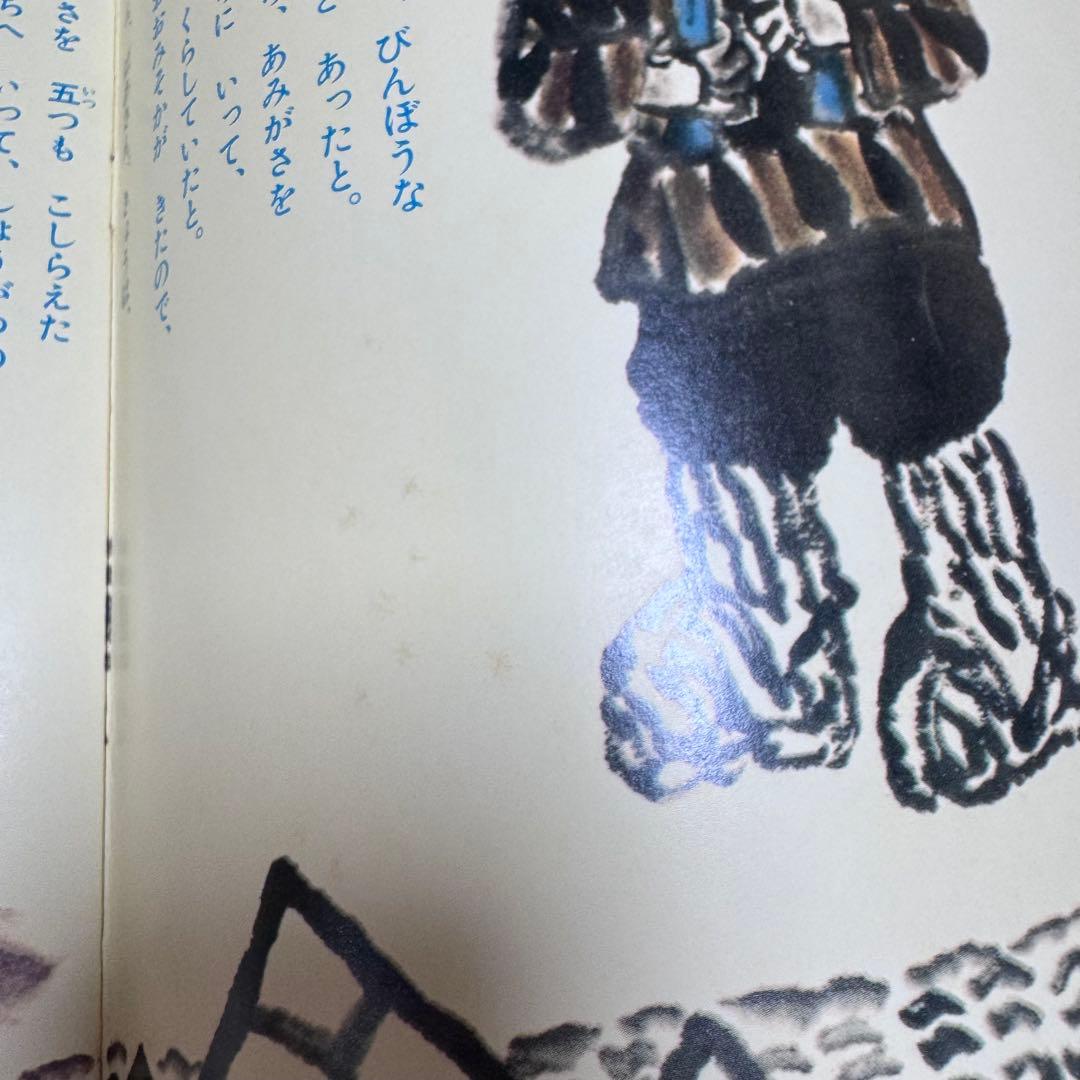 びんぼうな
と あったと。
あみがさを
に いって、
くらしていたと。
おおみそかが きたので、
さを 五つも こしらえた
いつ
ちへ いって、しょうがつの